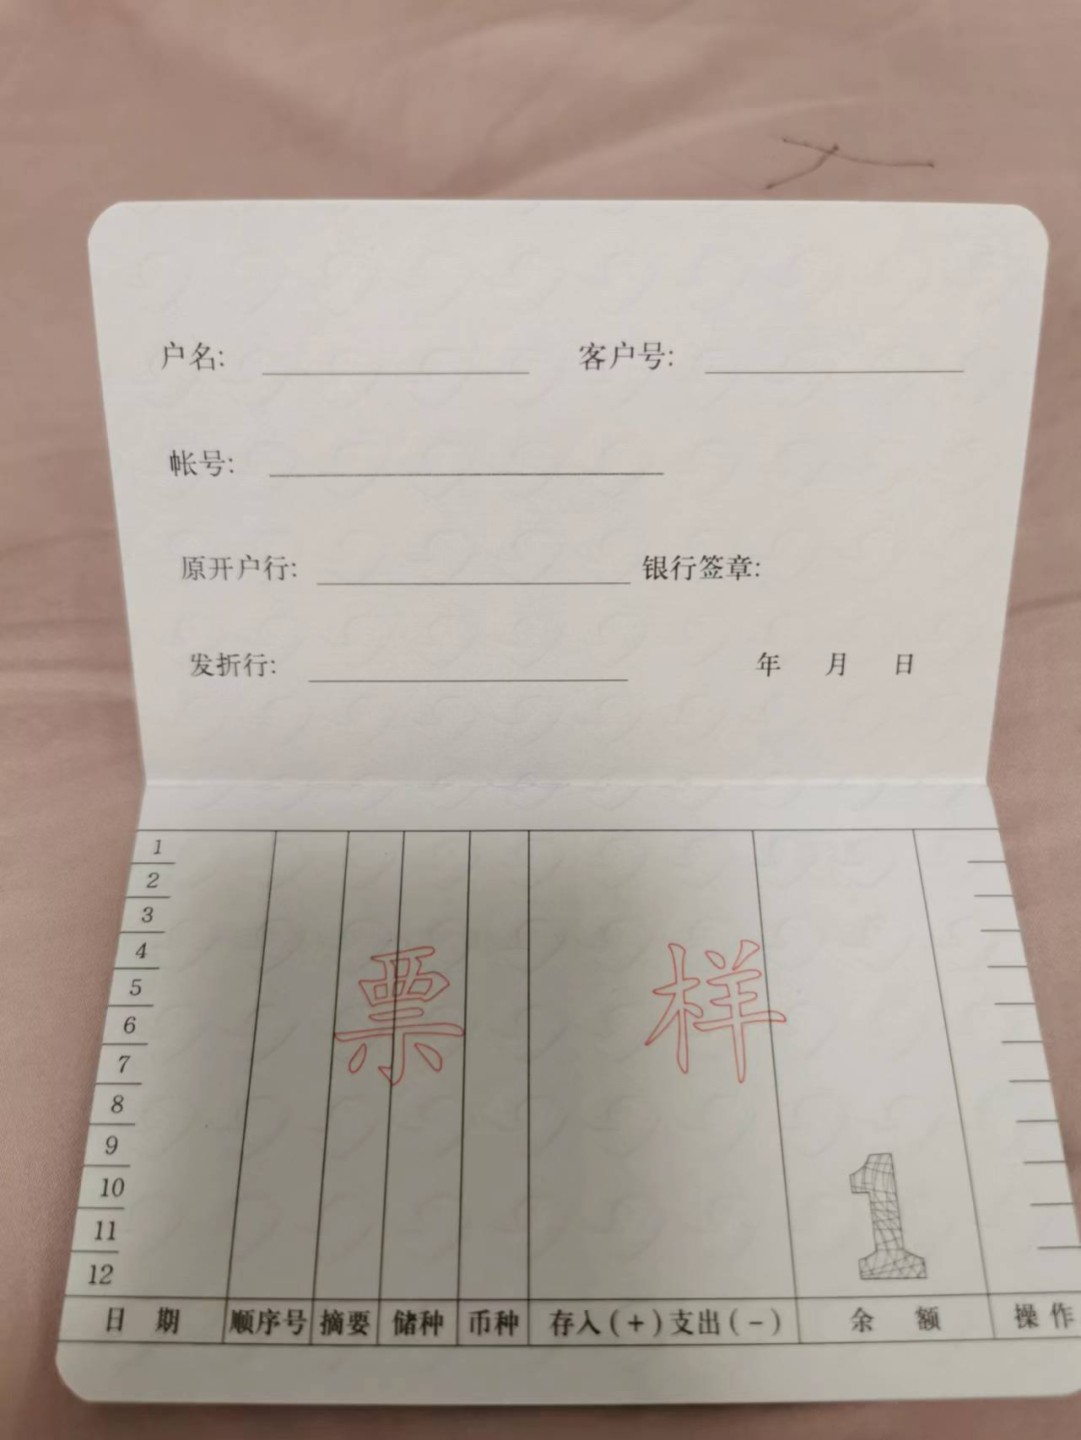 户名: 客户号:
帐号:
原开户行: 银行签章:
发折行: 年 月 日
1
2
3
4
5
6
7
8
9
10
11
12
票 样
1
日 期 顺序号 摘要 储种 币种 存入(+)支出(-) 余 额 操作